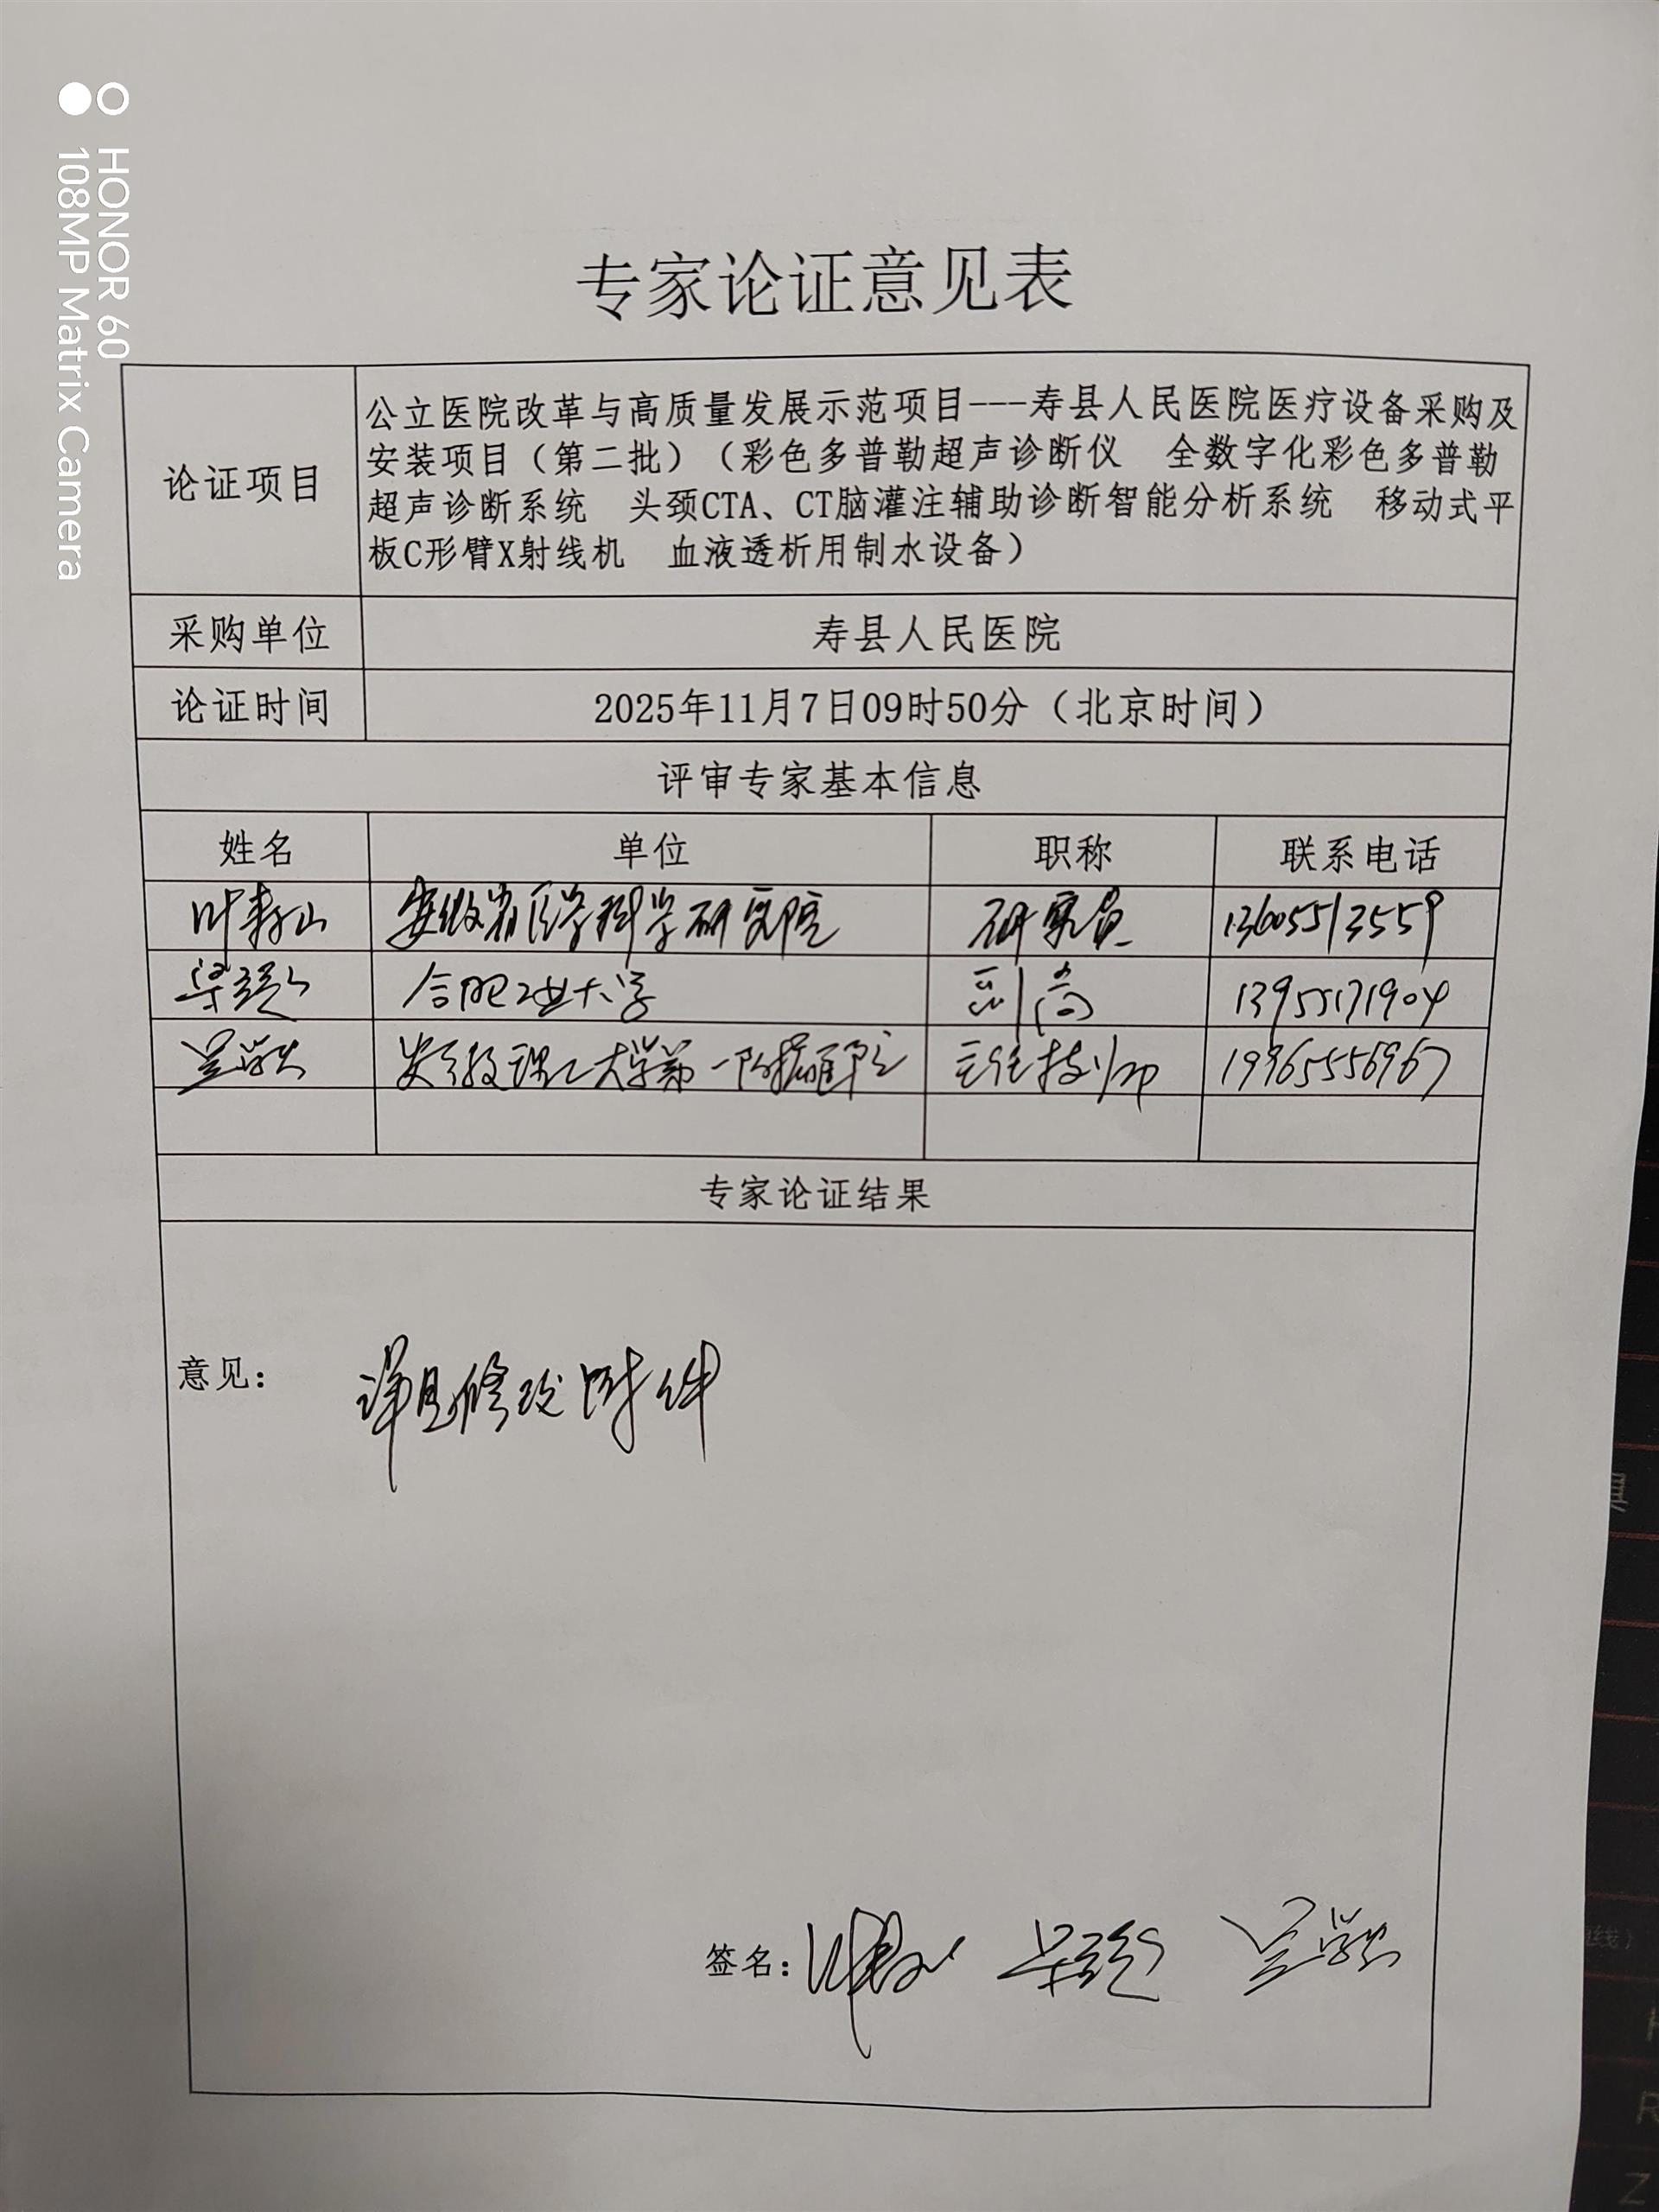 HONOR 60
108MP Matrix Camera
专家论证意见表
论证项目
公立医院改革与高质量发展示范项目---寿县人民医院医疗设备采购及
安装项目（第二批）（彩色多普勒超声诊断仪 全数字化彩色多普勒
超声诊断系统 头颈CTA、CT脑灌注辅助诊断智能分析系统 移动式平
板C形臂X射线机 血液透析用制水设备）
采购单位 寿县人民医院
论证时间 2025年11月7日09时50分（北京时间）
评审专家基本信息
姓名 单位 职称 联系电话
安徽省医学科学研究院 研究员 13605513559
合肥工业大学 副高 13955171904
安徽理工大学第一附属医院 主任技师 19965556967
专家论证结果
意见： 详见修改附件
签名：